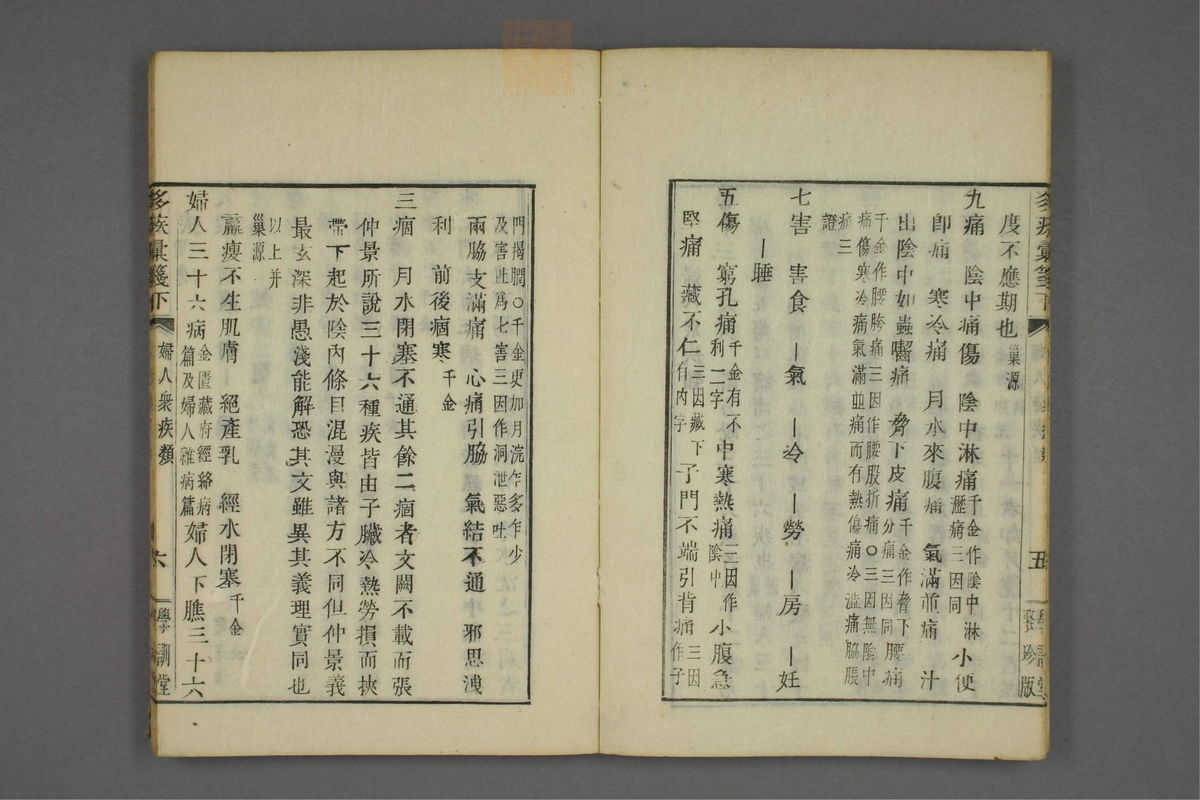 度不應期也巢源
九痛　陰中痛傷　陰中淋痛千金作陰中淋瀝痛三因同　小便
卽痛　寒冷痛　月水來腹痛　氣滿並痛　汁
出陰中如蟲嚙痛　脅下皮痛千金作脅下分痛三因同　腰痛
千金作腰胯痛三因作腰股折痛○三因無陰中
痛傷寒冷痛氣滿並痛而有熱傷痛冷溢痛脇脹
痛三
證
七害　害食　｜氣　｜冷　｜勞　｜房　｜妊
｜睡
五傷　窮孔痛千金有不利二字　中寒熱痛三因作陰中　小腹急
堅痛　藏不仁三因藏下有內字　子門不端引背痛三因痛作子
五
聚珍版
門揭膶○千金更加月浣乍多乍少
及害吐爲七害三因作洞泄惡吐
兩脇支滿痛　心痛引脇　氣結不通　邪思洩
利　前後痼寒千金
三痼　月水閉塞不通其餘二痼者文闕不載而張
仲景所說三十六種疾皆由子臟冷熱勞損而挾
帶下起於陰內條目混漫與諸方不同但仲景義
最玄深非愚淺能解恐其文雖異其義理實同也
以上并
巢源
羸瘦不生肌膚　絕產乳　經水閉塞千金
婦人三十六病金匱藏府經絡病篇及婦人雜病篇　婦人下膲三十六
疾彙箋下　婦人衆疾類　六　學訓堂